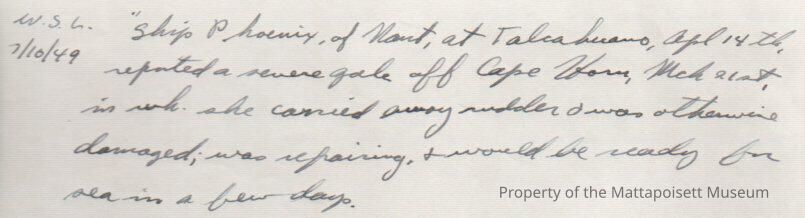 W.S.L.
7/10/49
"Ship Phoenix, of Nant, at Talcahuano, Apl 14th,
reported a severe gale off Cape Horn, Mch 21st,
in wh. she carried away rudder & was otherwise
damaged; was repairing, & would be ready for
sea in a few days.
Property of the Mattapoisett Museum